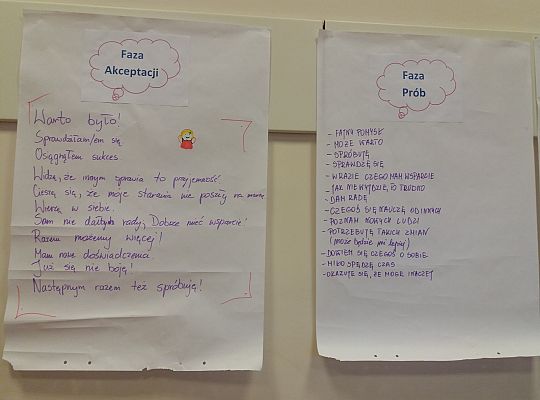 Faza
Akceptacji
Warto było!
Sprawdziłam/em się
Osiągnąłem sukces.
Widzę, że innym sprawia to przyjemność.
Cieszę się, że moje starania nie poszły na marne
Wierzę w siebie.
Sam nie dałbym rady, Dobrze mieć wsparcie!
Razem możemy więcej!
Mam nowe doświadczenia.
Już się nie boję!
Następnym razem też spróbuję!
Faza
Prób
- FAJNY POMYSŁ
- MOŻE WARTO
- SPRÓBUJĘ
- SPRAWDZĘ SIĘ
- W RAZIE CZEGO MAM WSPARCIE
- JAK NIE WYJDZIE, TO TRUDNO
- DAM RADĘ
- CZEGOŚ SIĘ NAUCZĘ OD INNYCH
- POZNAM NOWYCH LUDZI
- POTRZEBUJĘ TAKICH ZMIAN
(może będzie mi lepiej)
- DOWIEM SIĘ CZEGOŚ O SOBIE
- MIŁO SPĘDZĘ CZAS
- OKAZUJE SIĘ, ŻE MOGĘ INACZEJ